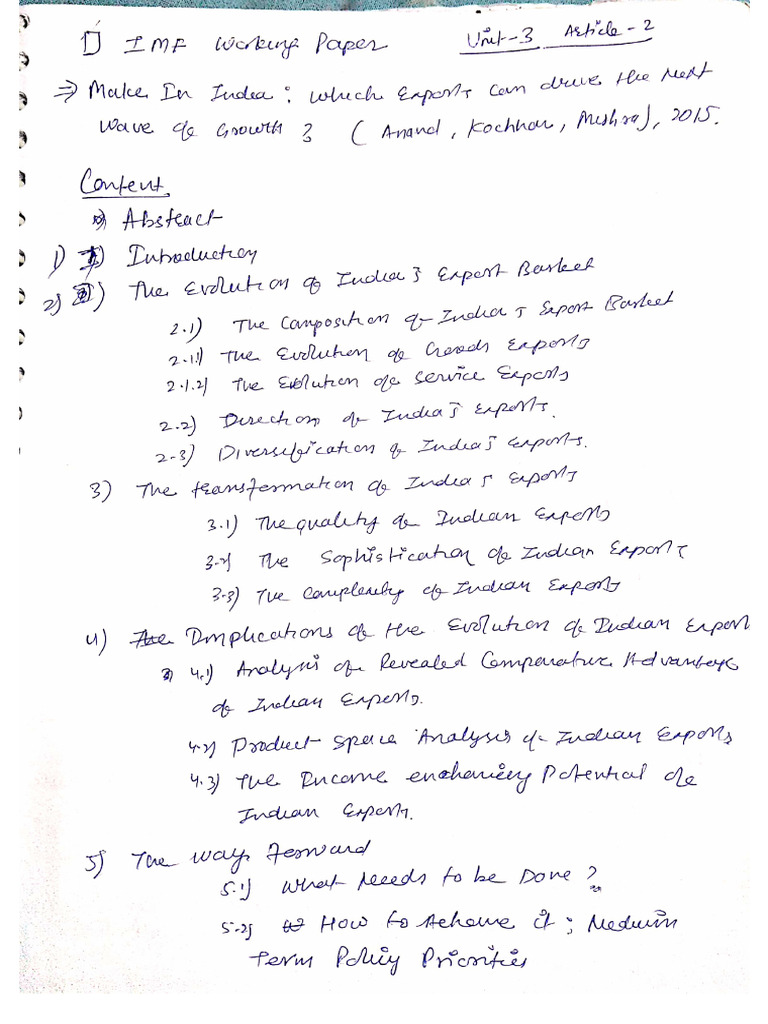 1) IMF Working Paper Unit-3 Article-2
⇒ Make In India: Which Exports Can drive the Next
Wave of Growth? (Anand, Kochhar, Mishra), 2015.
Content
Abstract
1) Introduction
2) The Evolution of India's Export Basket
2.1) The Composition of India's Export Basket
2.1.1) The Evolution of Goods Exports
2.1.2) The Evolution of Service Exports
2.2) Direction of India's Exports.
2.3) Diversification of India's Exports.
3) The transformation of India's Exports
3.1) The quality of Indian Exports
3.2) The Sophistication of Indian Exports
3.3) The Complexity of Indian Exports
4) The Implications of the Evolution of Indian Export
4.1) Analysis of Revealed Comparative Advantage
of Indian Exports.
4.2) Product Space Analysis of Indian Exports
4.3) The Income enchancing Potential of
Indian Exports.
5) The Way forward
5.1) What Needs to be Done?
5.2) How to Acheive it; Medium
Term Policy Priorities